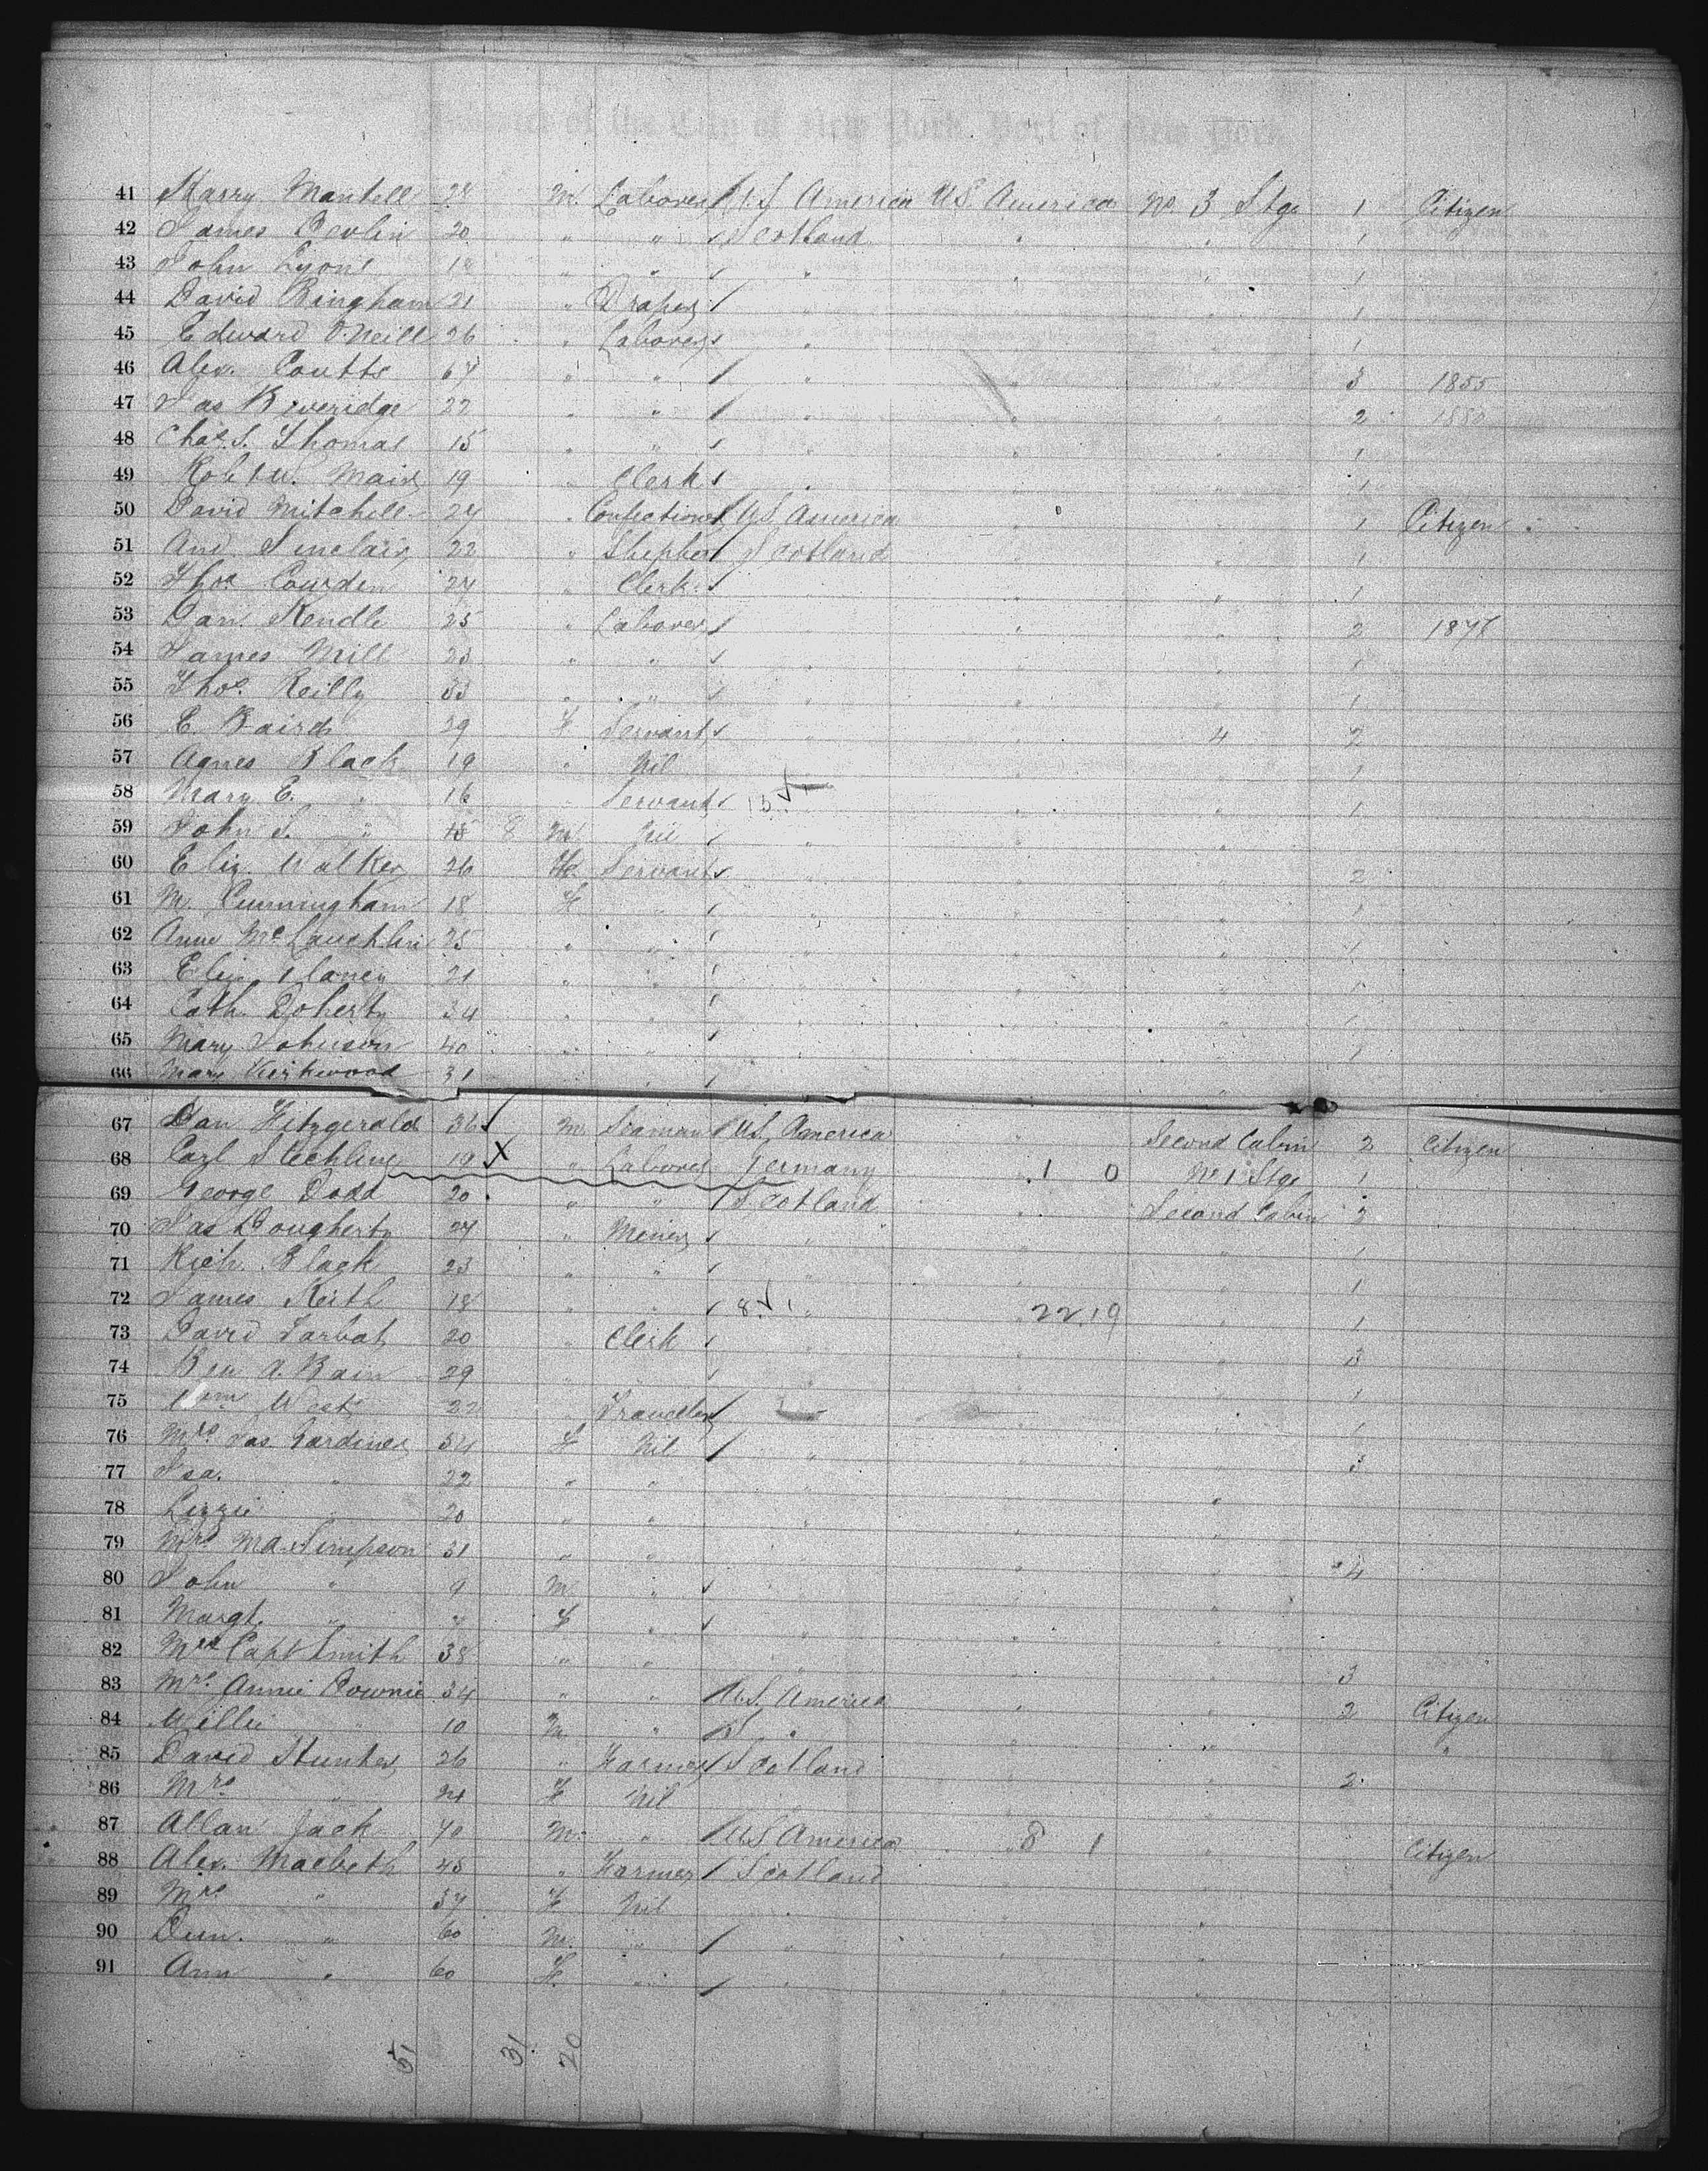 41 Harry Mantell 28 M. Laborer U.S America US America No. 3 Stge 1 Citizen
42 James Devlin 20 " " Scotland " " 1
43 John Lyons 18 " " " " " 1
44 David Bingham 21 " Draper " " 1
45 Edward O'Neill 26 " Laborer " " " 1
46 Alex. Coutts 67 " " " " " 3 1855
47 Jas Beveridge 22 " " " " " 2 1880
48 Chas. S. Thomas 15 " " " " 1
49 Robt W. Mair 19 " Clerk " " " 1
50 David Mitchell 24 " Confectioner US America " " 1 Citizen
51 And. Sinclair 22 " Shepherd Scotland " " 1
52 Thos 24 " Clerk " " " 1
53 Dan. Kendle 25 " Laborer " " " 2 1878
54 James Mill 23 " " " " " 1
55 Thos. Reilly 33 " " " " " 1
56 E. Baird 29 F Servant " " 4 2
57 Agnes Black 19 " Nil " " 1
58 Mary E. " 16 " Servant 15 " " 1
59 John S. " 8 M Nil " " "
60 Eliz. Walker 26 Servant " " " 2
61 M. Cunningham 18 F " " " " 1
62 Anne McLauchlin 25 " " " " " 1
63 Eliz 21 " " " " " 1
64 Cath. Doherty 34 " " " " " 1
65 Mary Johnson 40 " " " " " 1
66 Mary Kirkwood 31 " " "
67 Dan Fitzgerald 36 M Seaman U.S. America " Second Cabin 2 Citizen
68 Carl Stechline 19 X " Laborer Germany 1 0 No 1 Stge 1
69 George Dodd 20 " " Scotland " Second Cabin 3
70 Jas Dougherty 24 " Miner " " " 1
71 Rich. Black 23 " " " " " 1
72 James Keith 18 " " 8 1 " 22.19 " 1
73 David Tarbat 20 " Clerk " " " 3
74 A. Bain 29 " " " " " 1
75 Wm West 22 " Traveller " " 1
76 Mrs. Jas. Gardiner 54 F Nil " " " 3
77 Isa. " 22 " " " "
78 Lizzie " 20 " " " "
79 Mrs Ma. Simpson 31 " " " " 4
80 John " 9 M " " " "
81 Margt. " F " " " "
82 Mrs Capt Smith 38 " " " " " 3
83 Mrs. Annie Downie 34 " " U.S. America " " 2 Citizen
84 Millie " 10 " " " " "
85 David Hunter 26 " Farmer Scotland " " 2
86 Mrs. " 24 F Nil " "
87 Allan Jack 40 M. " US America 8 1 " Citizen
88 Alex. Macbeth 45 " Farmer Scotland " "
89 Mrs " 37 F Nil " " "
90 Dun. " 60 M. " " " "
91 Ann " 60 F. " " " "
51 31 20